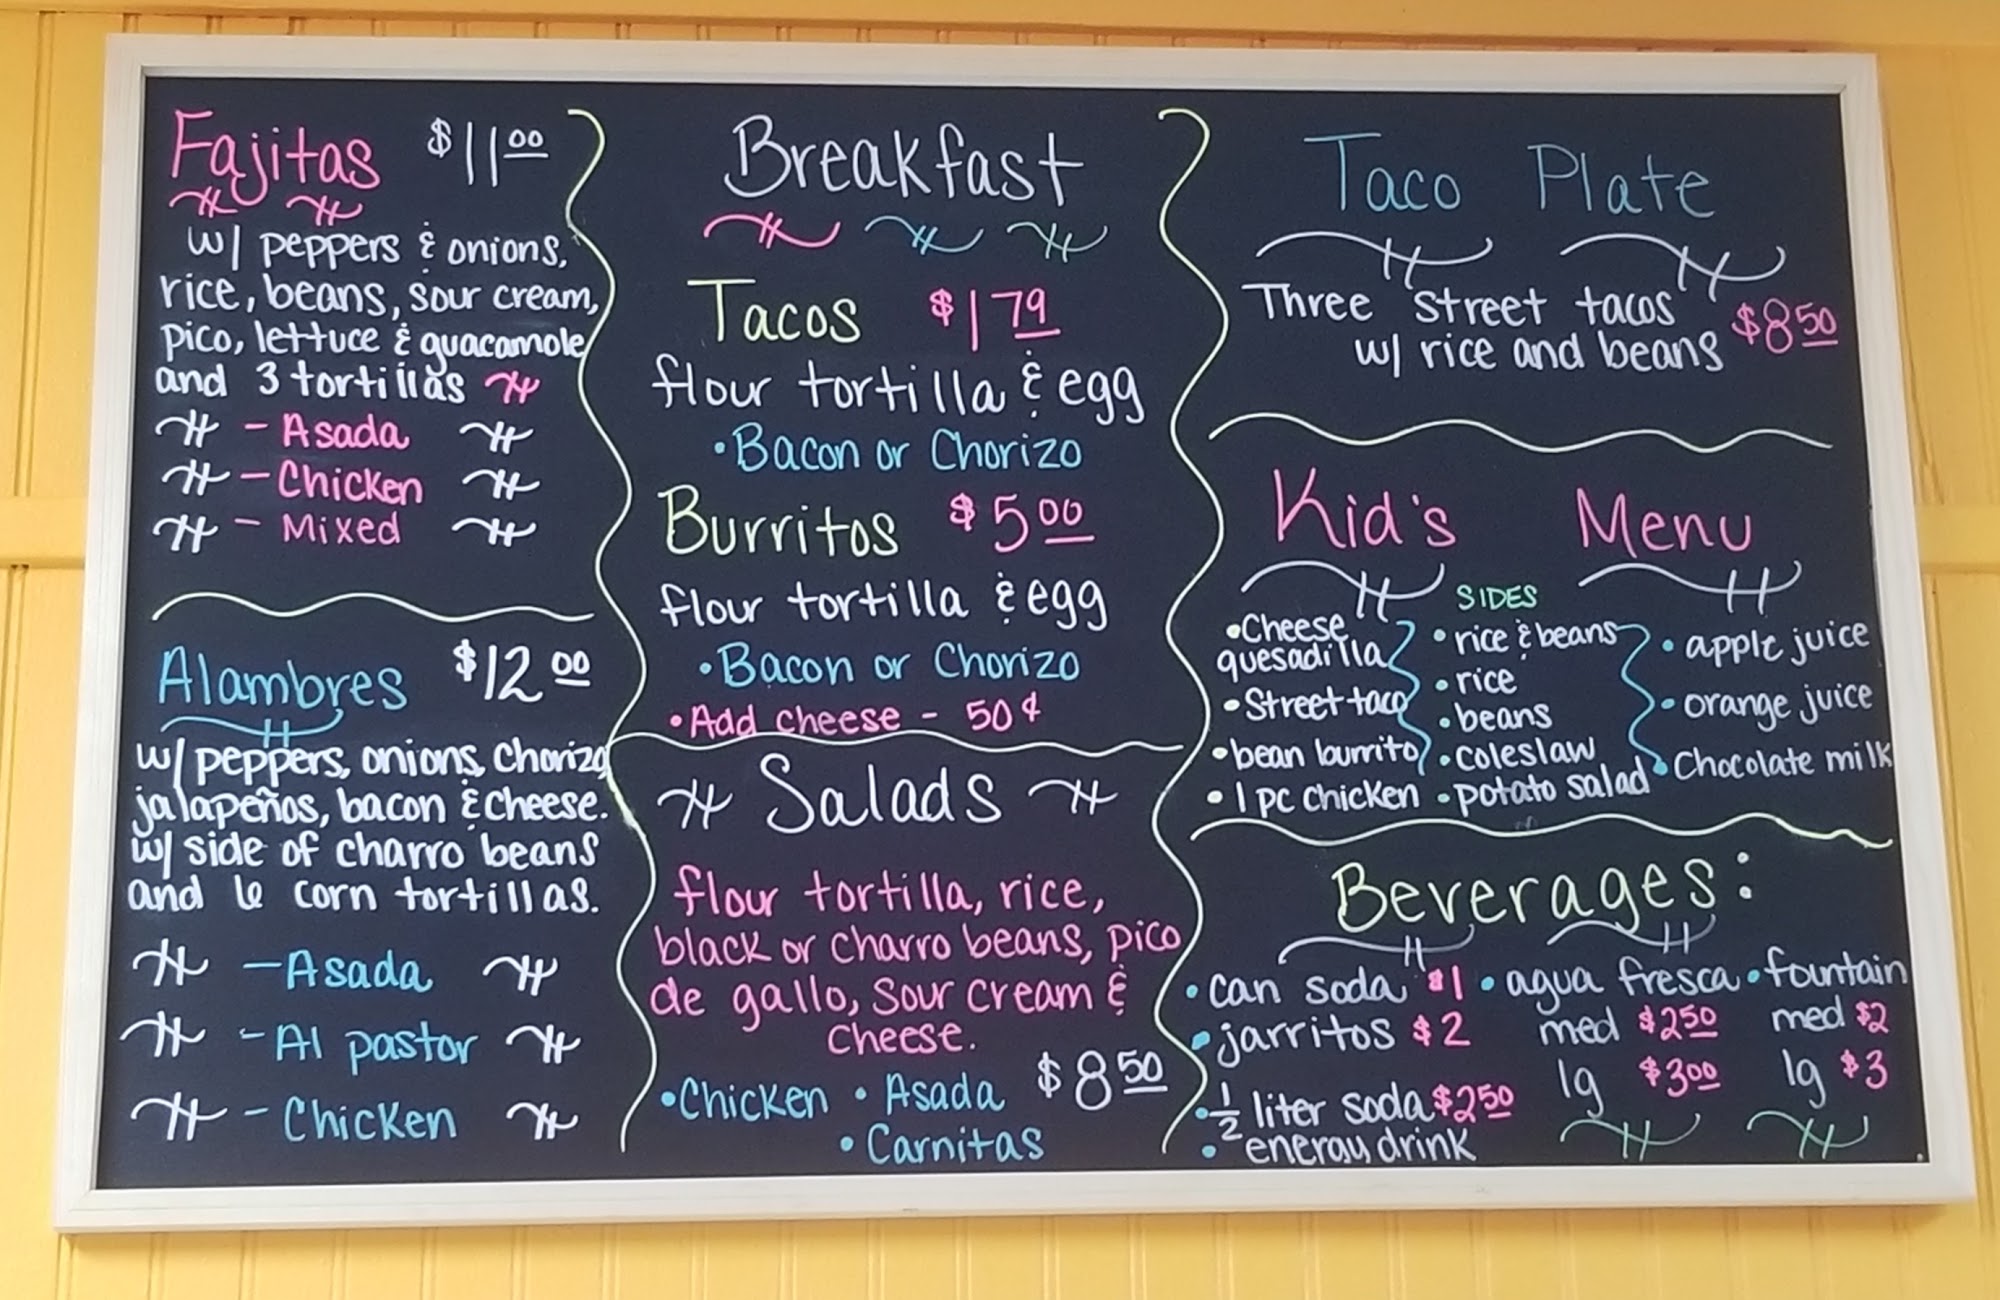 Fajitas $11.00
w/ peppers & onions,
rice, beans, sour cream,
pico, lettuce & guacamole
and 3 tortillas
- Asada
- Chicken
- Mixed
Alambres $12.00
w/ peppers, onions, chorizo
jalapeños, bacon & cheese.
w/ side of charro beans
and 6 corn tortillas.
- Asada
- Al pastor
- Chicken
Breakfast
Tacos $1.79
flour tortilla & egg
• Bacon or Chorizo
Burritos $5.00
flour tortilla & egg
• Bacon or Chorizo
• Add cheese - 50¢
Salads
flour tortilla, rice,
black or charro beans, pico
de gallo, sour cream &
cheese.
$8.50
• Chicken • Asada
• Carnitas
Taco Plate
Three street tacos
w/ rice and beans $8.50
Kid's Menu
• Cheese
quesadilla
• Street taco
• bean burrito
• 1 pc chicken
SIDES
• rice & beans
• rice
• beans
• coleslaw
• potato salad
• apple juice
• orange juice
• Chocolate milk
Beverages:
• can soda $1
• jarritos $2
• 1/2 liter soda $2.50
• energy drink
• agua fresca
med $2.50
lg $3.00
• fountain
med $2
lg $3